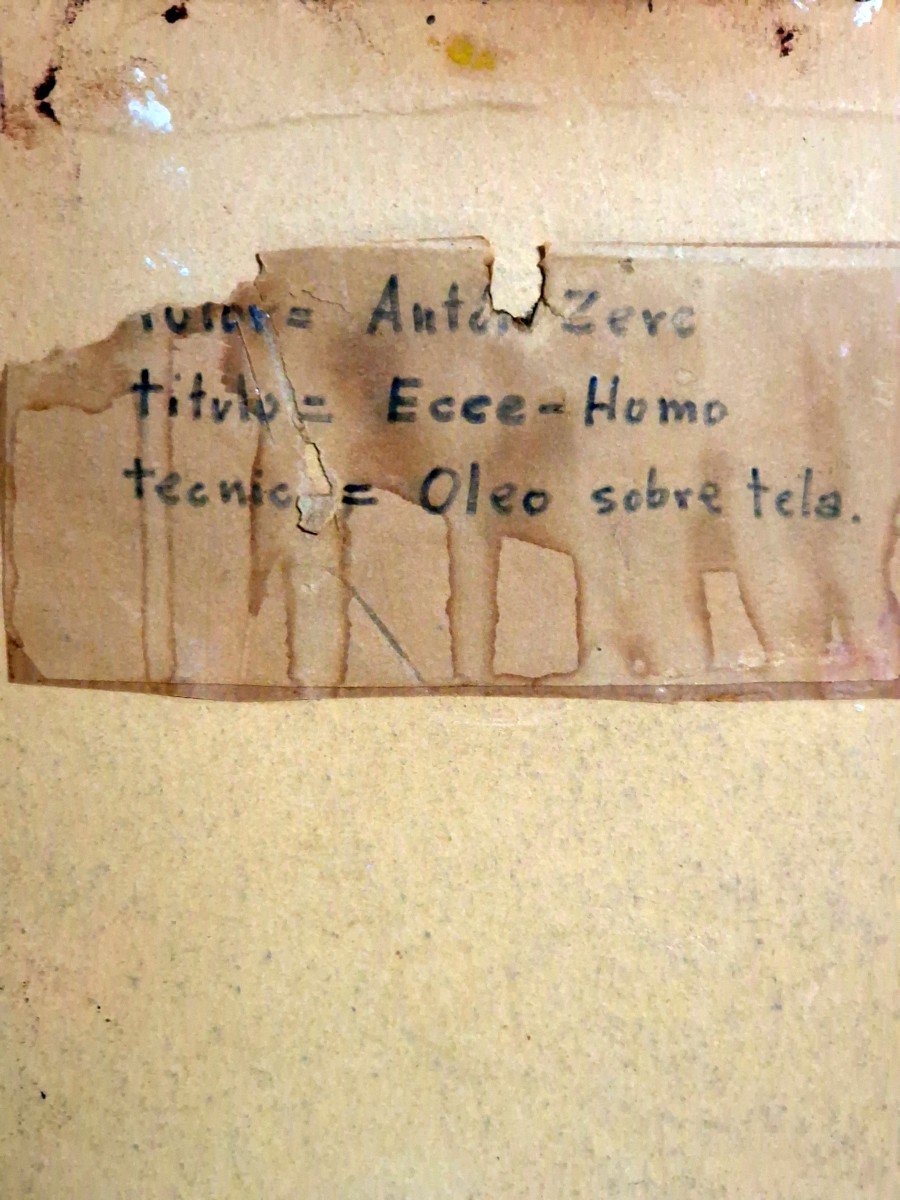 Autor = Antón Zero
titulo = Ecce-Homo
tecnica = Oleo sobre tela.